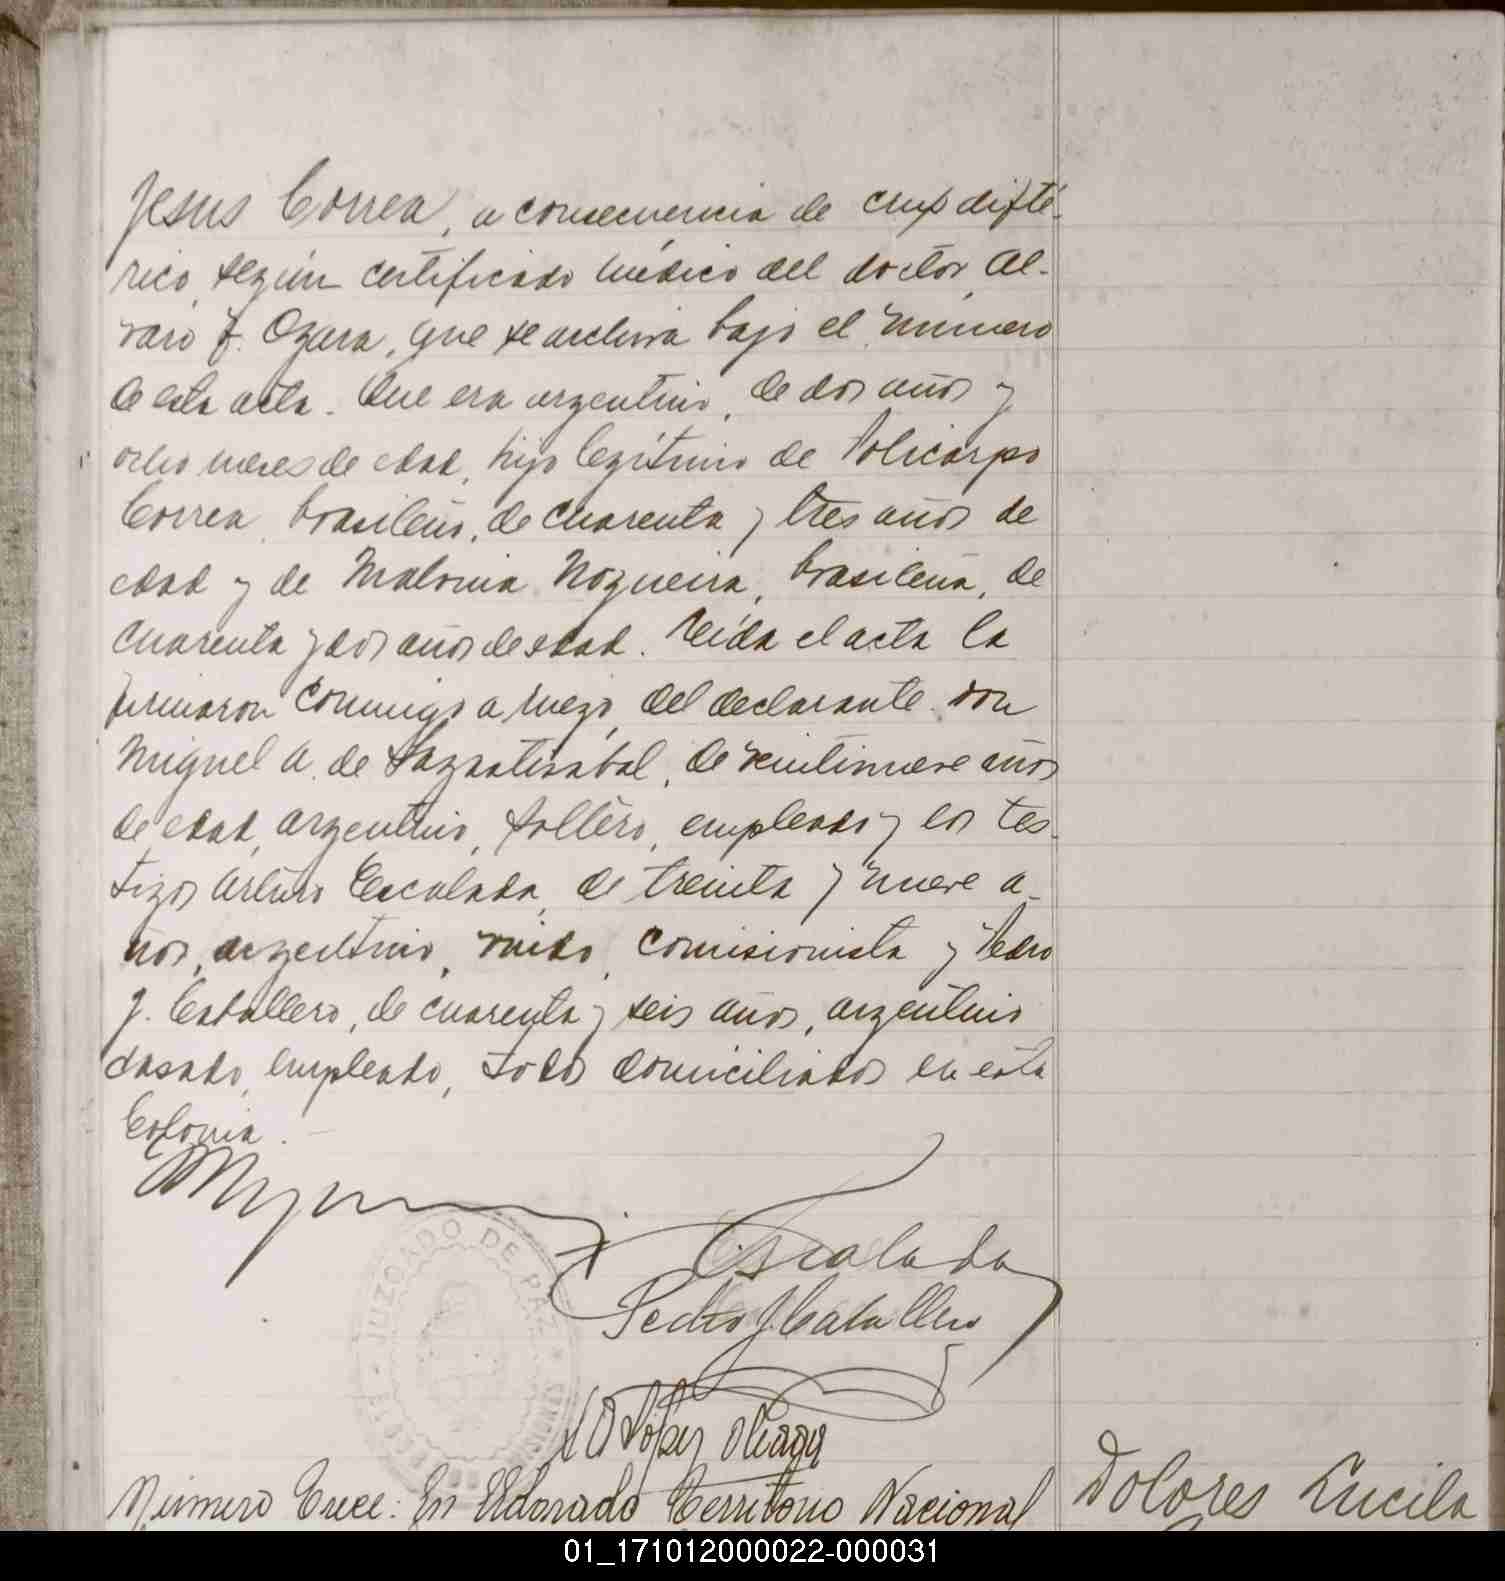 Jesus Correa, a consecuencia de crup difté-
rico, según certificado médico del doctor Al-
varo J. Ozura, que se archiva bajo el número
de esta acta. Que era argentino, de dos años y
ocho meses de edad, hijo legítimo de Policarpo
Correa, brasileño, de cuarenta y tres años de
edad y de Malonia Nogueira, brasileña, de
cuarenta y dos años de edad. Leída el acta la
firmaron conmigo a ruego del declarante don
Miguel A. de, de veintinueve años
de edad, argentino, soltero, empleado y los tes-
tigos Arturo Escalada, de treinta y nueve a-
ños, argentino, viudo, comisionista y Pedro
J. Caballero, de cuarenta y seis años, argentino
casado, empleado, todos domiciliados en esta
Colonia.
Escalada
Pedro J. Caballero
JUZGADO DE PAZ
MISIONES
López
Número Trece: En Eldorado Territorio Nacional
Dolores Lucila
01_171012000022-000031